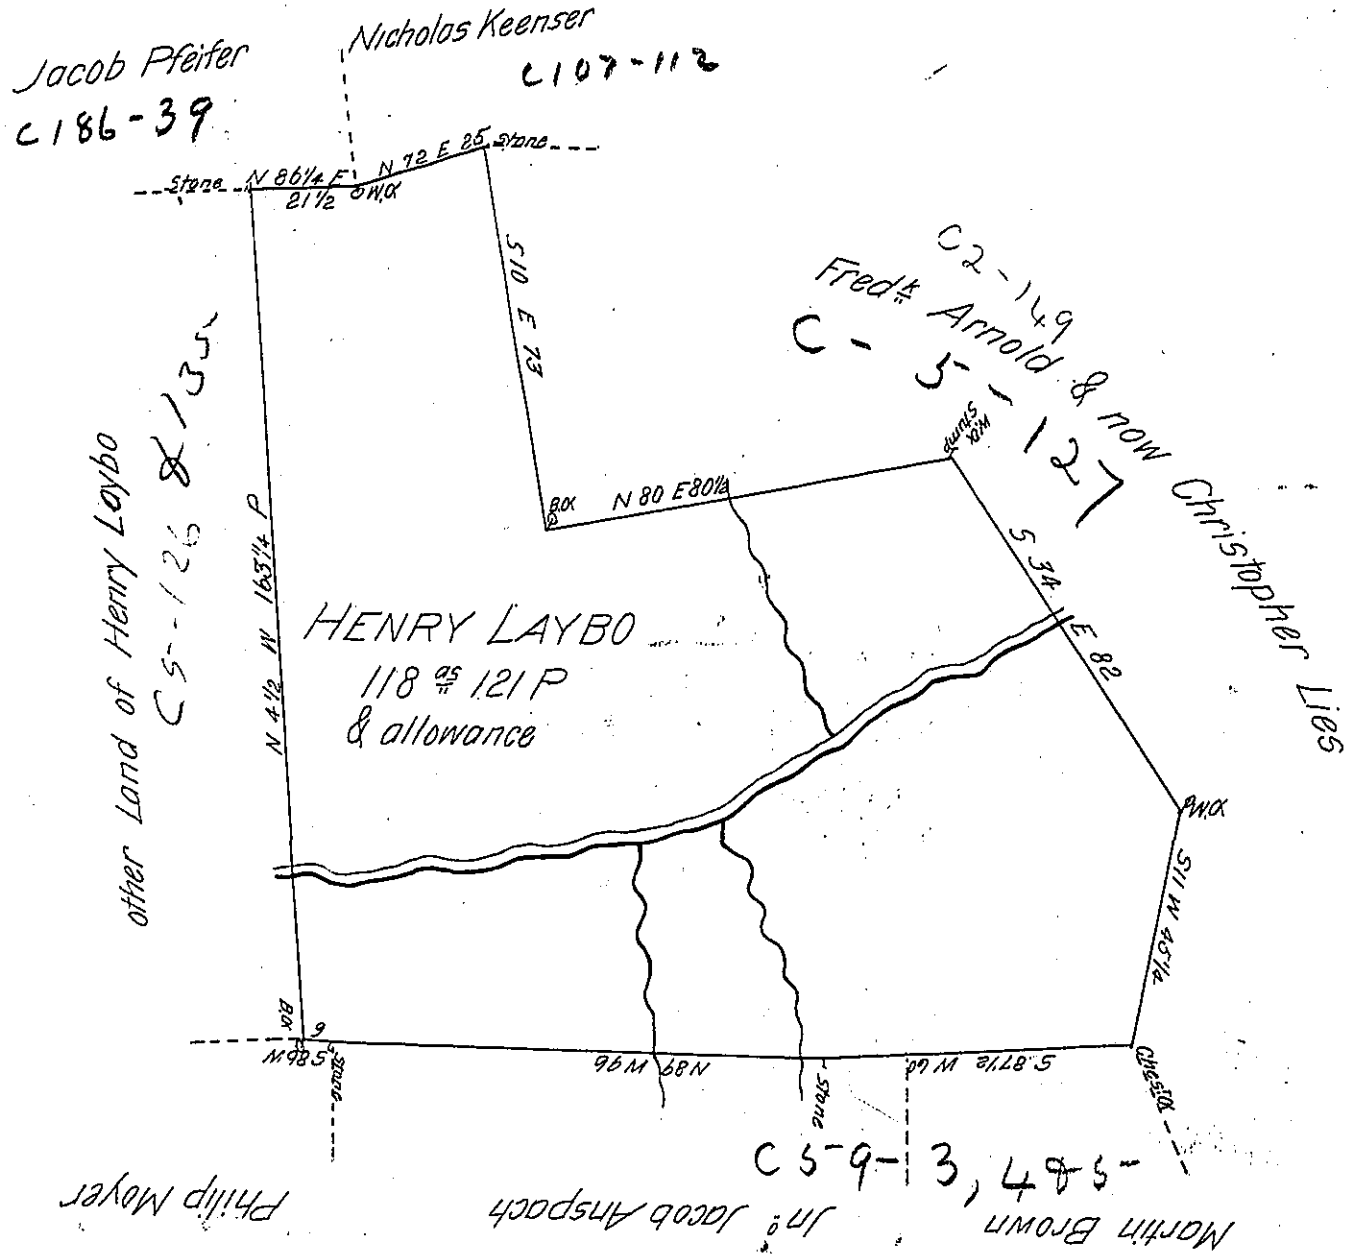 Jacob Pfeifer
C186-39
Nicholas Keenser
C107-112
Stone
N 86¼ E
21½
W.O.
N 72 E 25
Stone
S 10 E 73
C2-149
Fredk Arnold & now Christopher Lies
C-5-127
W.O.
Stump
B.O.
N 80 E 80½
S 34 E 82
other Land of Henry Laybo
C5-126 & 135
N 4½ W 163¼ P
HENRY LAYBO
118 as 121 P
& allowance
W.O.
S 11 W 45½
B.O.
6
S 86 W
Stone
N 89 W 96
Stone
S 87½ W 60
Ches: O.
C59-3, 4 & 5
Philip Moyer
Jno Jacob Anspach
Martin Brown